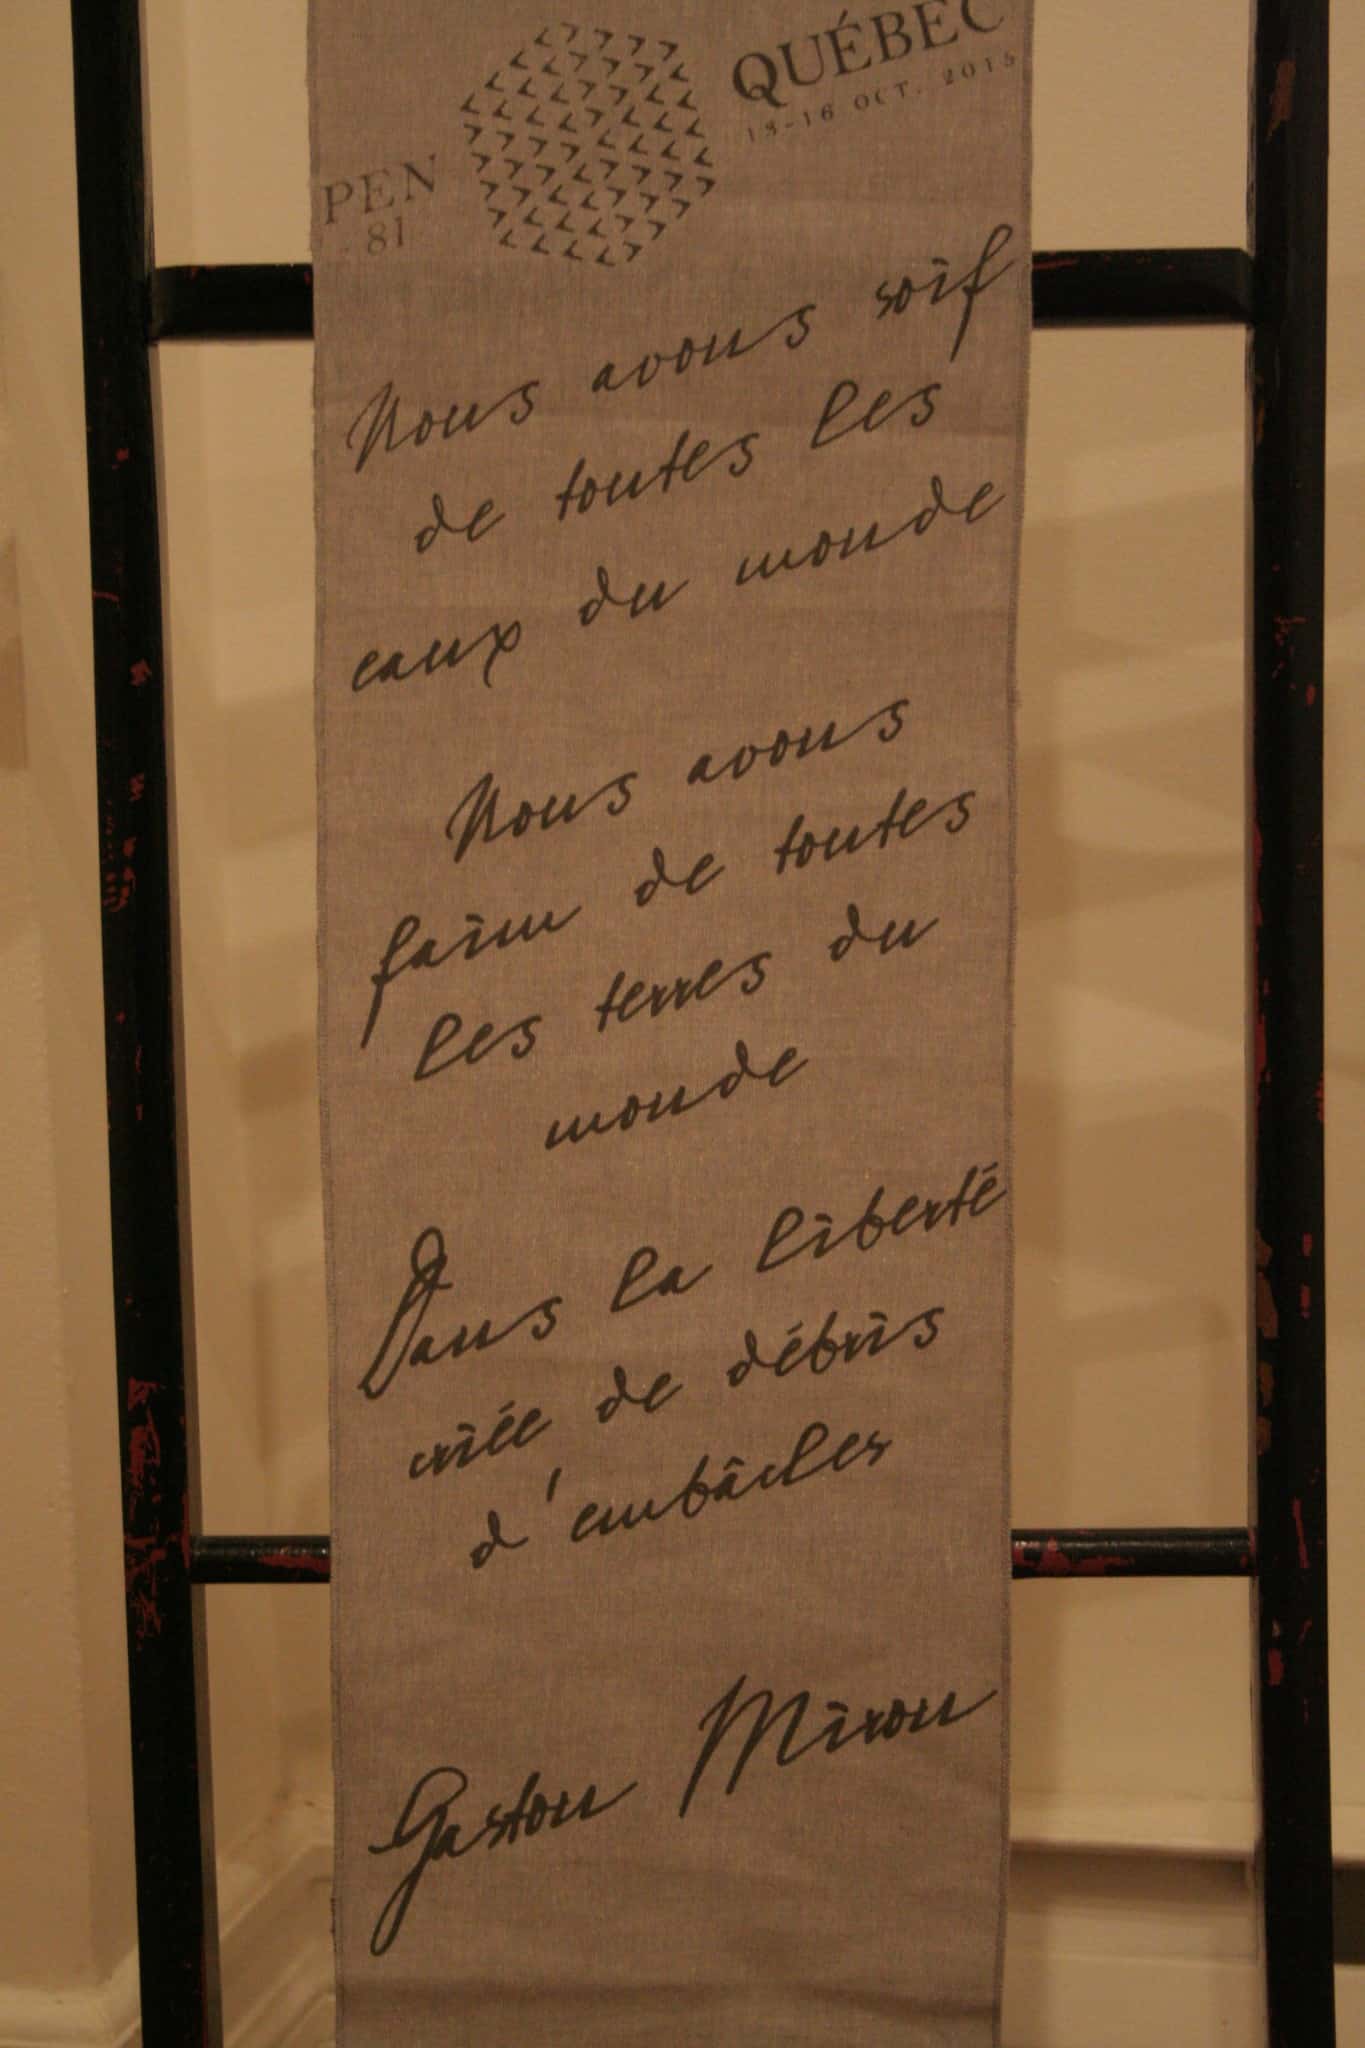 QUÉBEC
13-16 OCT. 2015
PEN
81
Nous avons soif
de toutes les
eaux du monde
Nous avons
faim de toutes
les terres du
monde
Dans la liberté
criée de débris
d'embâcles
Gaston Miron